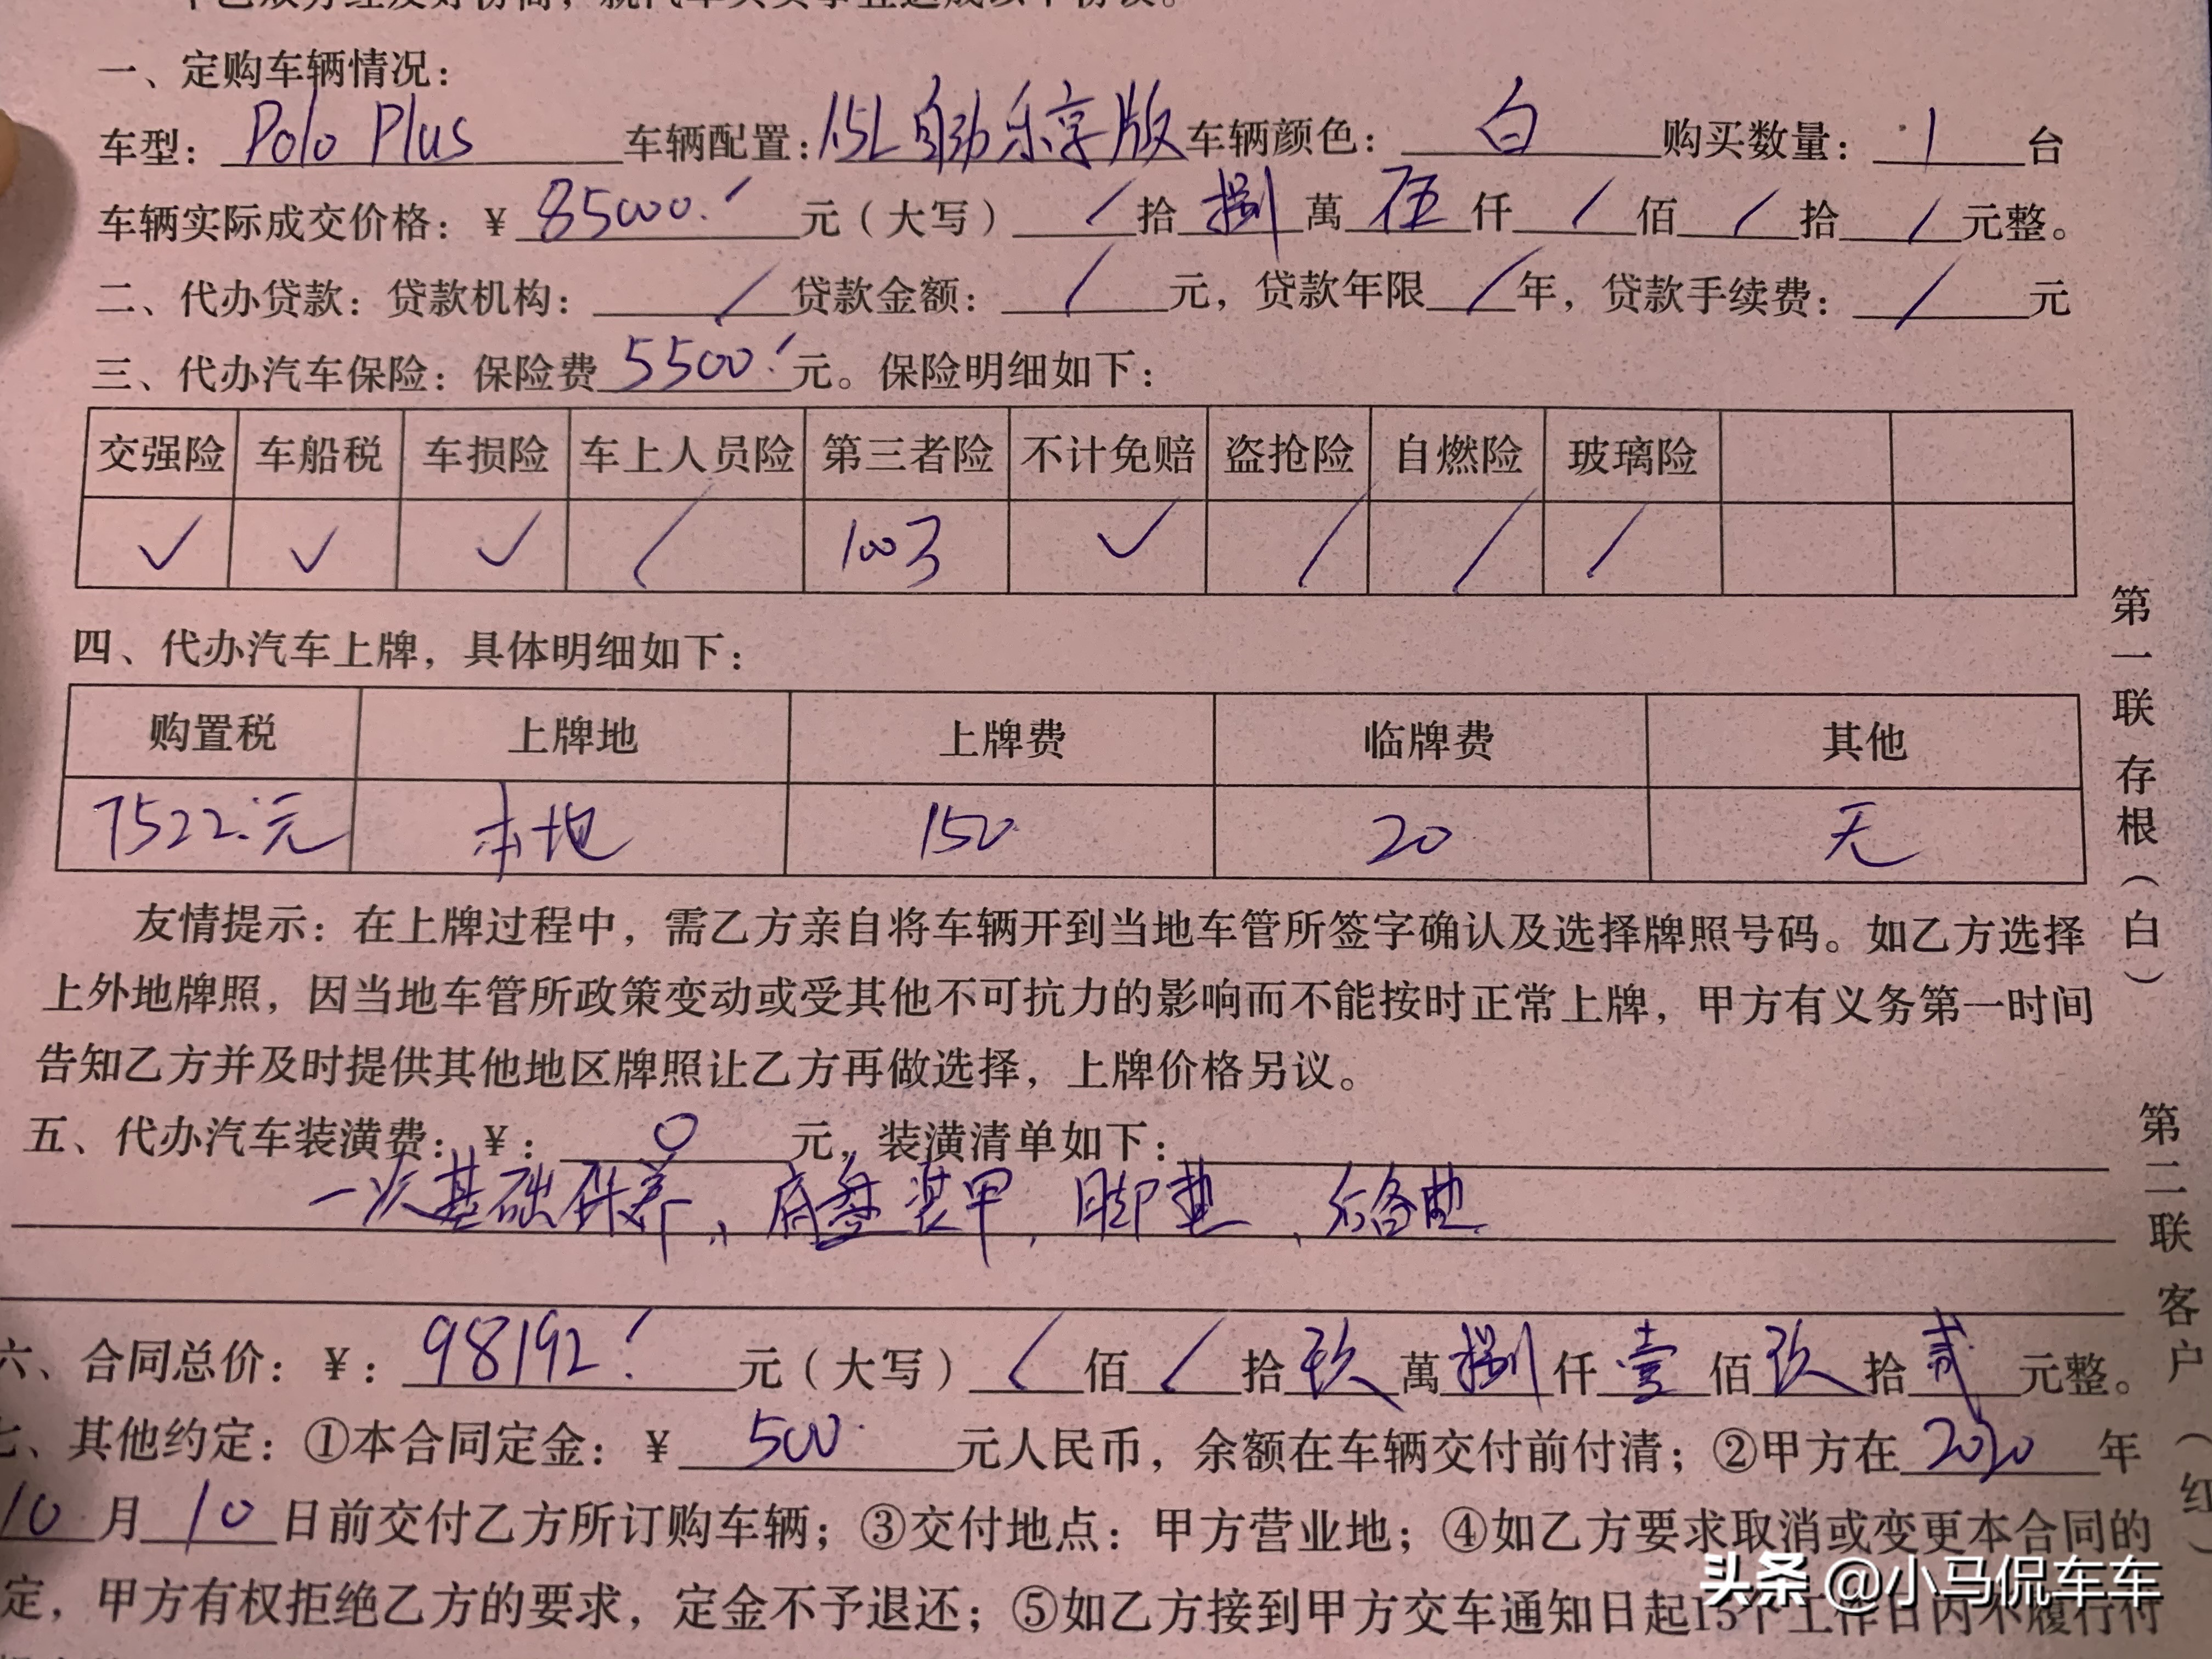 甲乙双方经友好协商，就汽车买卖事宜达成以下协议。
一、定购车辆情况：
车型：Polo Plus 车辆配置：1.5L自动乐享版 车辆颜色：白 购买数量：1 台
车辆实际成交价格：¥ 85000.- 元（大写）/ 拾 捌 萬 伍 仟 / 佰 / 拾 / 元整。
二、代办贷款：贷款机构：/ 贷款金额：/ 元，贷款年限 / 年，贷款手续费：/ 元
三、代办汽车保险：保险费 5500.- 元。保险明细如下：
交强险 车船税 车损险 车上人员险 第三者险 不计免赔 盗抢险 自燃险 玻璃险
✓ ✓ ✓ / 100万 ✓ / / /
四、代办汽车上牌，具体明细如下：
购置税 上牌地 上牌费 临牌费 其他
7522.元 本地 150 20 无
友情提示：在上牌过程中，需乙方亲自将车辆开到当地车管所签字确认及选择牌照号码。如乙方选择
上外地牌照，因当地车管所政策变动或受其他不可抗力的影响而不能按时正常上牌，甲方有义务第一时间
告知乙方并及时提供其他地区牌照让乙方再做选择，上牌价格另议。
五、代办汽车装潢费：¥：0 元，装潢清单如下：
一次基础保养、底盘装甲、脚垫、后备垫
六、合同总价：¥：98192.- 元（大写）/ 佰 / 拾 玖 萬 捌 仟 壹 佰 玖 拾 贰 元整。
七、其他约定：①本合同定金：¥ 500 元人民币，余额在车辆交付前付清；②甲方在 2020 年
10 月 10 日前交付乙方所订购车辆；③交付地点：甲方营业地；④如乙方要求取消或变更本合同的
定，甲方有权拒绝乙方的要求，定金不予退还；⑤如乙方接到甲方交车通知日起15个工作日内不履行付
第一联 存根（白）
第二联 客户（红）
头条 @小马侃车车